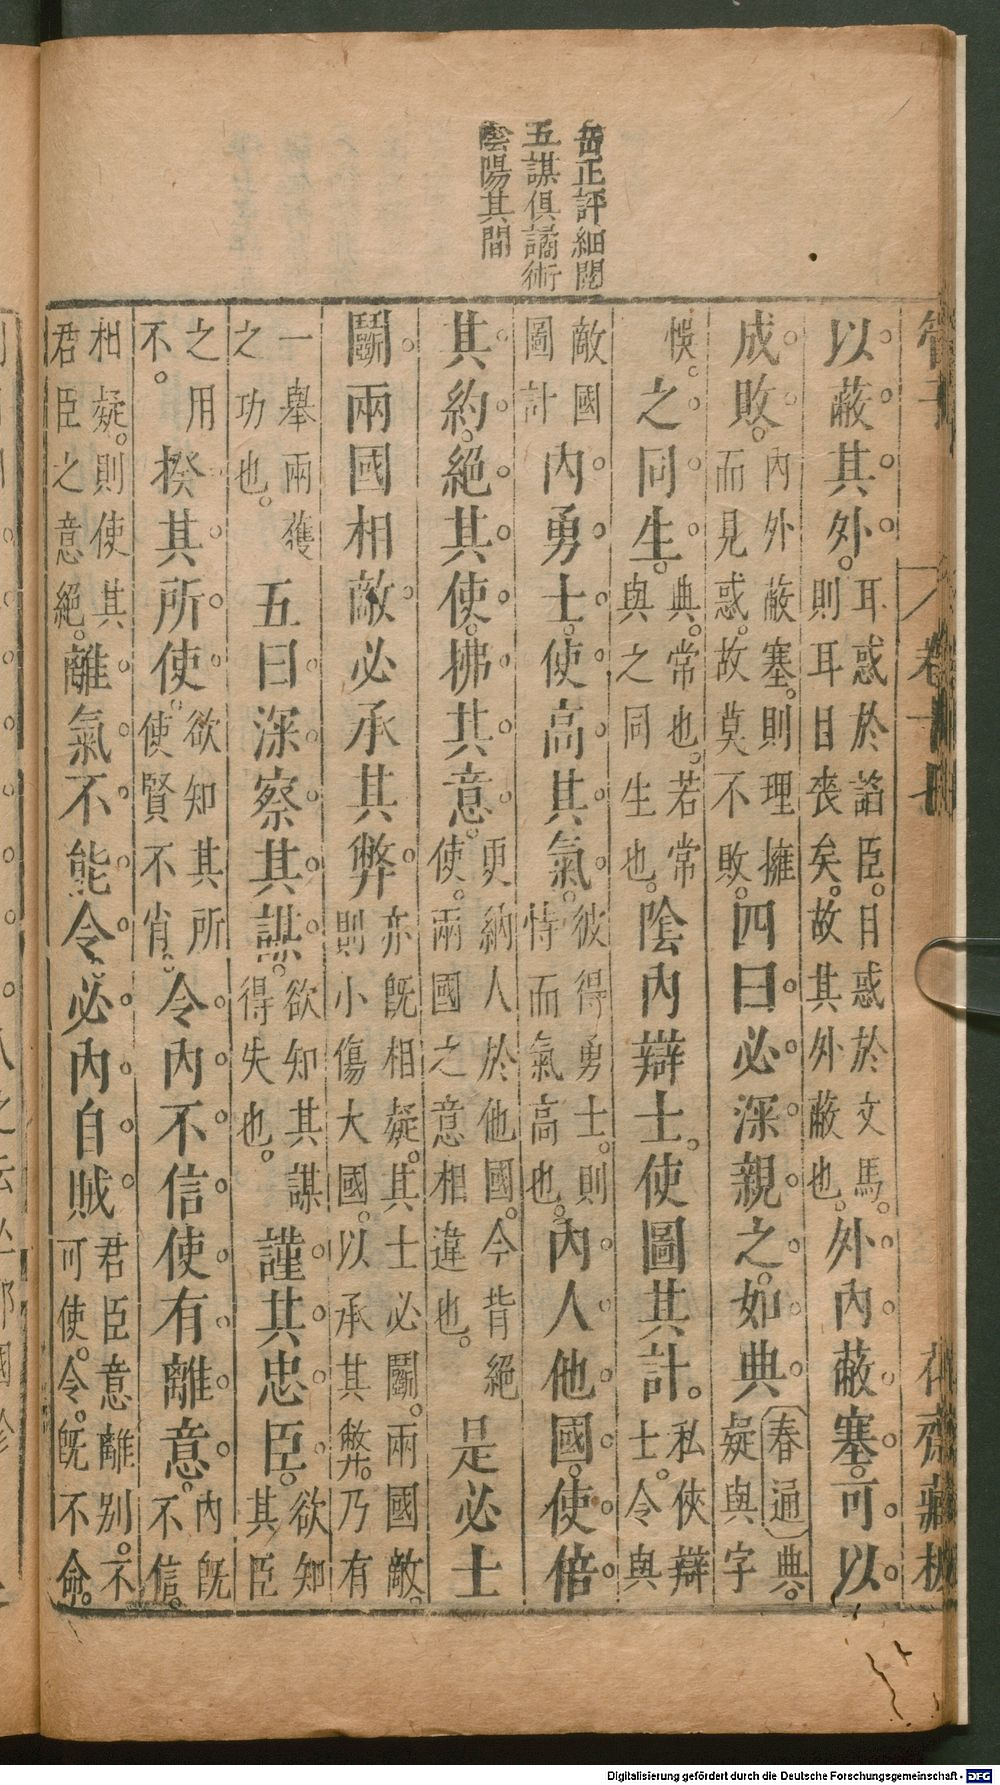 岳正評細閱
五謀俱譎術
陰陽其間
管子 卷十七 花齋藏板
以蔽其外。耳惑於諂臣。目惑於文馬。則耳目喪矣。故其外蔽也。外內蔽塞。可以
成敗。內外蔽塞。則理擁而見惑。故莫不敗。四曰必深親之。如典春通典。疑與字
悞。之同生。典。常也。若常與之同生也。陰內辯士。使圖其計。私俠辯士。令與
敵國圖計內勇士。使高其氣。彼得勇士。則恃而氣高也。內人他國。使倍
其約。絕其使。拂其意。更納人於他國。今背絕使。兩國之意相違也。是必士
鬭。兩國相敵。必承其弊。亦既相疑。其士必鬭。兩國敵。則小傷大國。以承其弊。乃有
一舉兩獲之功也。五曰深察其謀。欲知其謀得失也。謹其忠臣。欲知其臣
之用不。揆其所使。欲知其所使賢不肖。令內不信。使有離意。內既不信。
相疑。則使其君臣之意絕。離氣不能令。必內自賊。君臣意離別。不可使令。既不命。
Digitalisierung gefördert durch die Deutsche Forschungsgemeinschaft - DFG